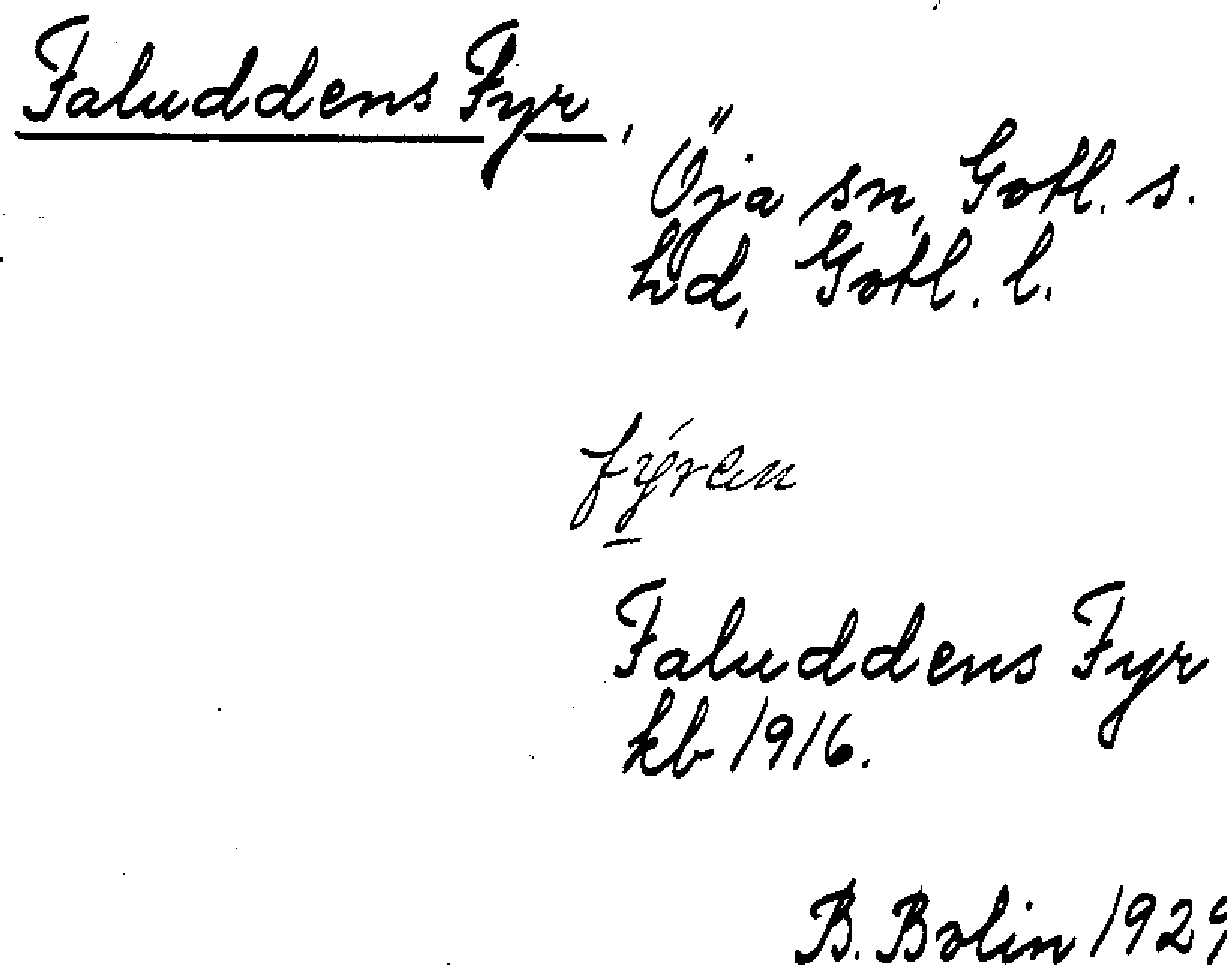 Faluddens Fyr,
Öja sn, Gotl. s.
hd, Gotl. l.
fýren
Faluddens Fyr
kb 1916.
B. Bolin 1929